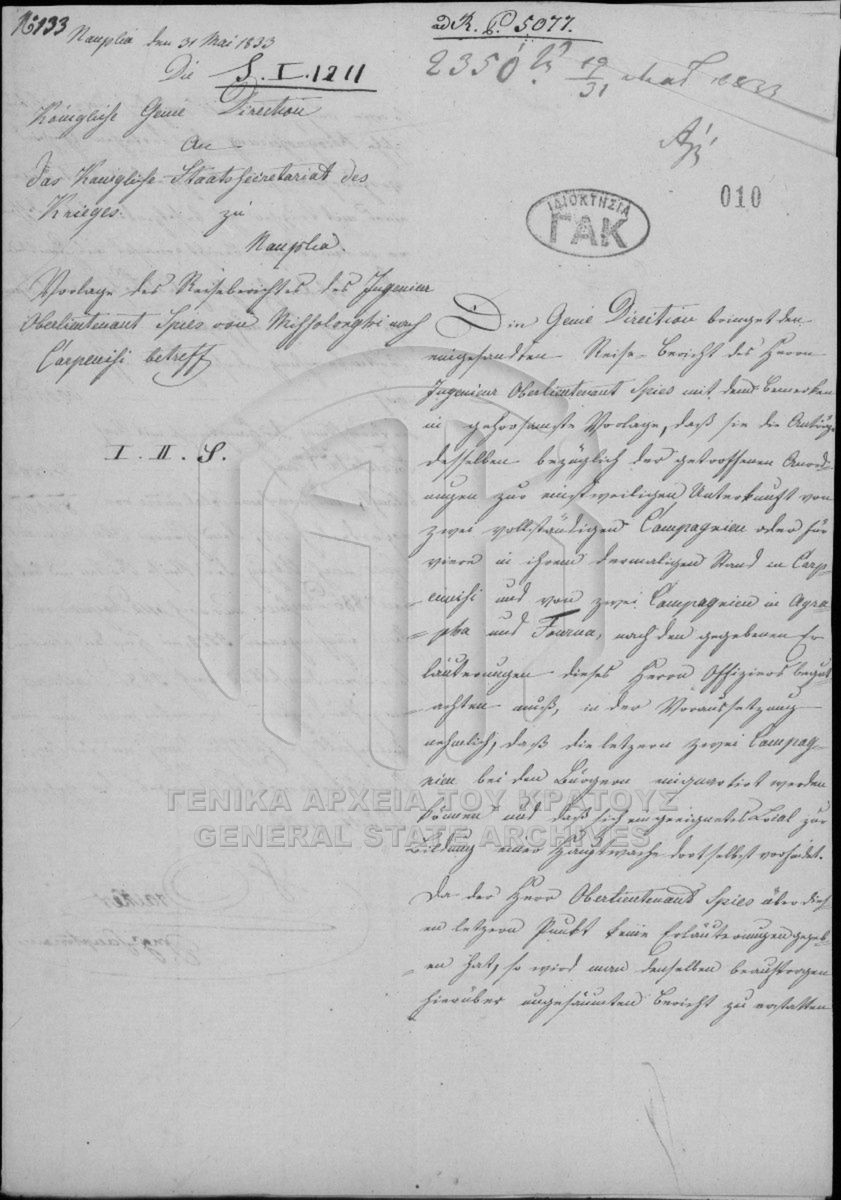 No 133
Nauplia den 31 Mai 1833
Die S. I. 1211
Königliche Genie Direction
An
das Königliche Staatssecretariat des
Krieges zu
Nauplia.
Vorlage des Reiseberichtes des Ingenieur
Oberlieutenant Spies von Missolonghi nach
Carpenisi betreff
I. II. S.
ad K. P. 5077.
2350 19/31 Mai 1833
010
ΙΔΙΟΚΤΗΣΙΑ
ΓΑΚ
Die Genie Direction bringet den
eingesandten Reise-Bericht des Herrn
Ingenieur Oberlieutenant Spies mit dem Bemerken
in gehorsamste Vorlage, daß sie die Anträge
desselben bezüglich der getroffenen Anord-
nungen zur einstweiligen Unterkunft von
zwei vollständigen Compagnien oder für
viere in ihrem dermaligen Stand in Carp-
enisi und von zwei Compagnien in Agra-
pha und Fourna, nach den gegebenen Er-
läuterungen dieses Herrn Offiziers begut-
achten muß, in der Voraussetzung
nehmlich, daß die letzern zwei Compag-
nien bei den Bürgern einquartirt werden
können und daß sich ein geeignetes Local zur
Bildung einer Hauptwache dortselbst vorfindet.
Da der Herr Oberlieutenant Spies über dies-
en letzern Punkt keine Erläuterungen gegeb-
en hat, so wird man denselben beauftragen
hierüber ungesäumten Bericht zu erstatten
ΓΕΝΙΚΑ ΑΡΧΕΙΑ ΤΟΥ ΚΡΑΤΟΥΣ
GENERAL STATE ARCHIVES